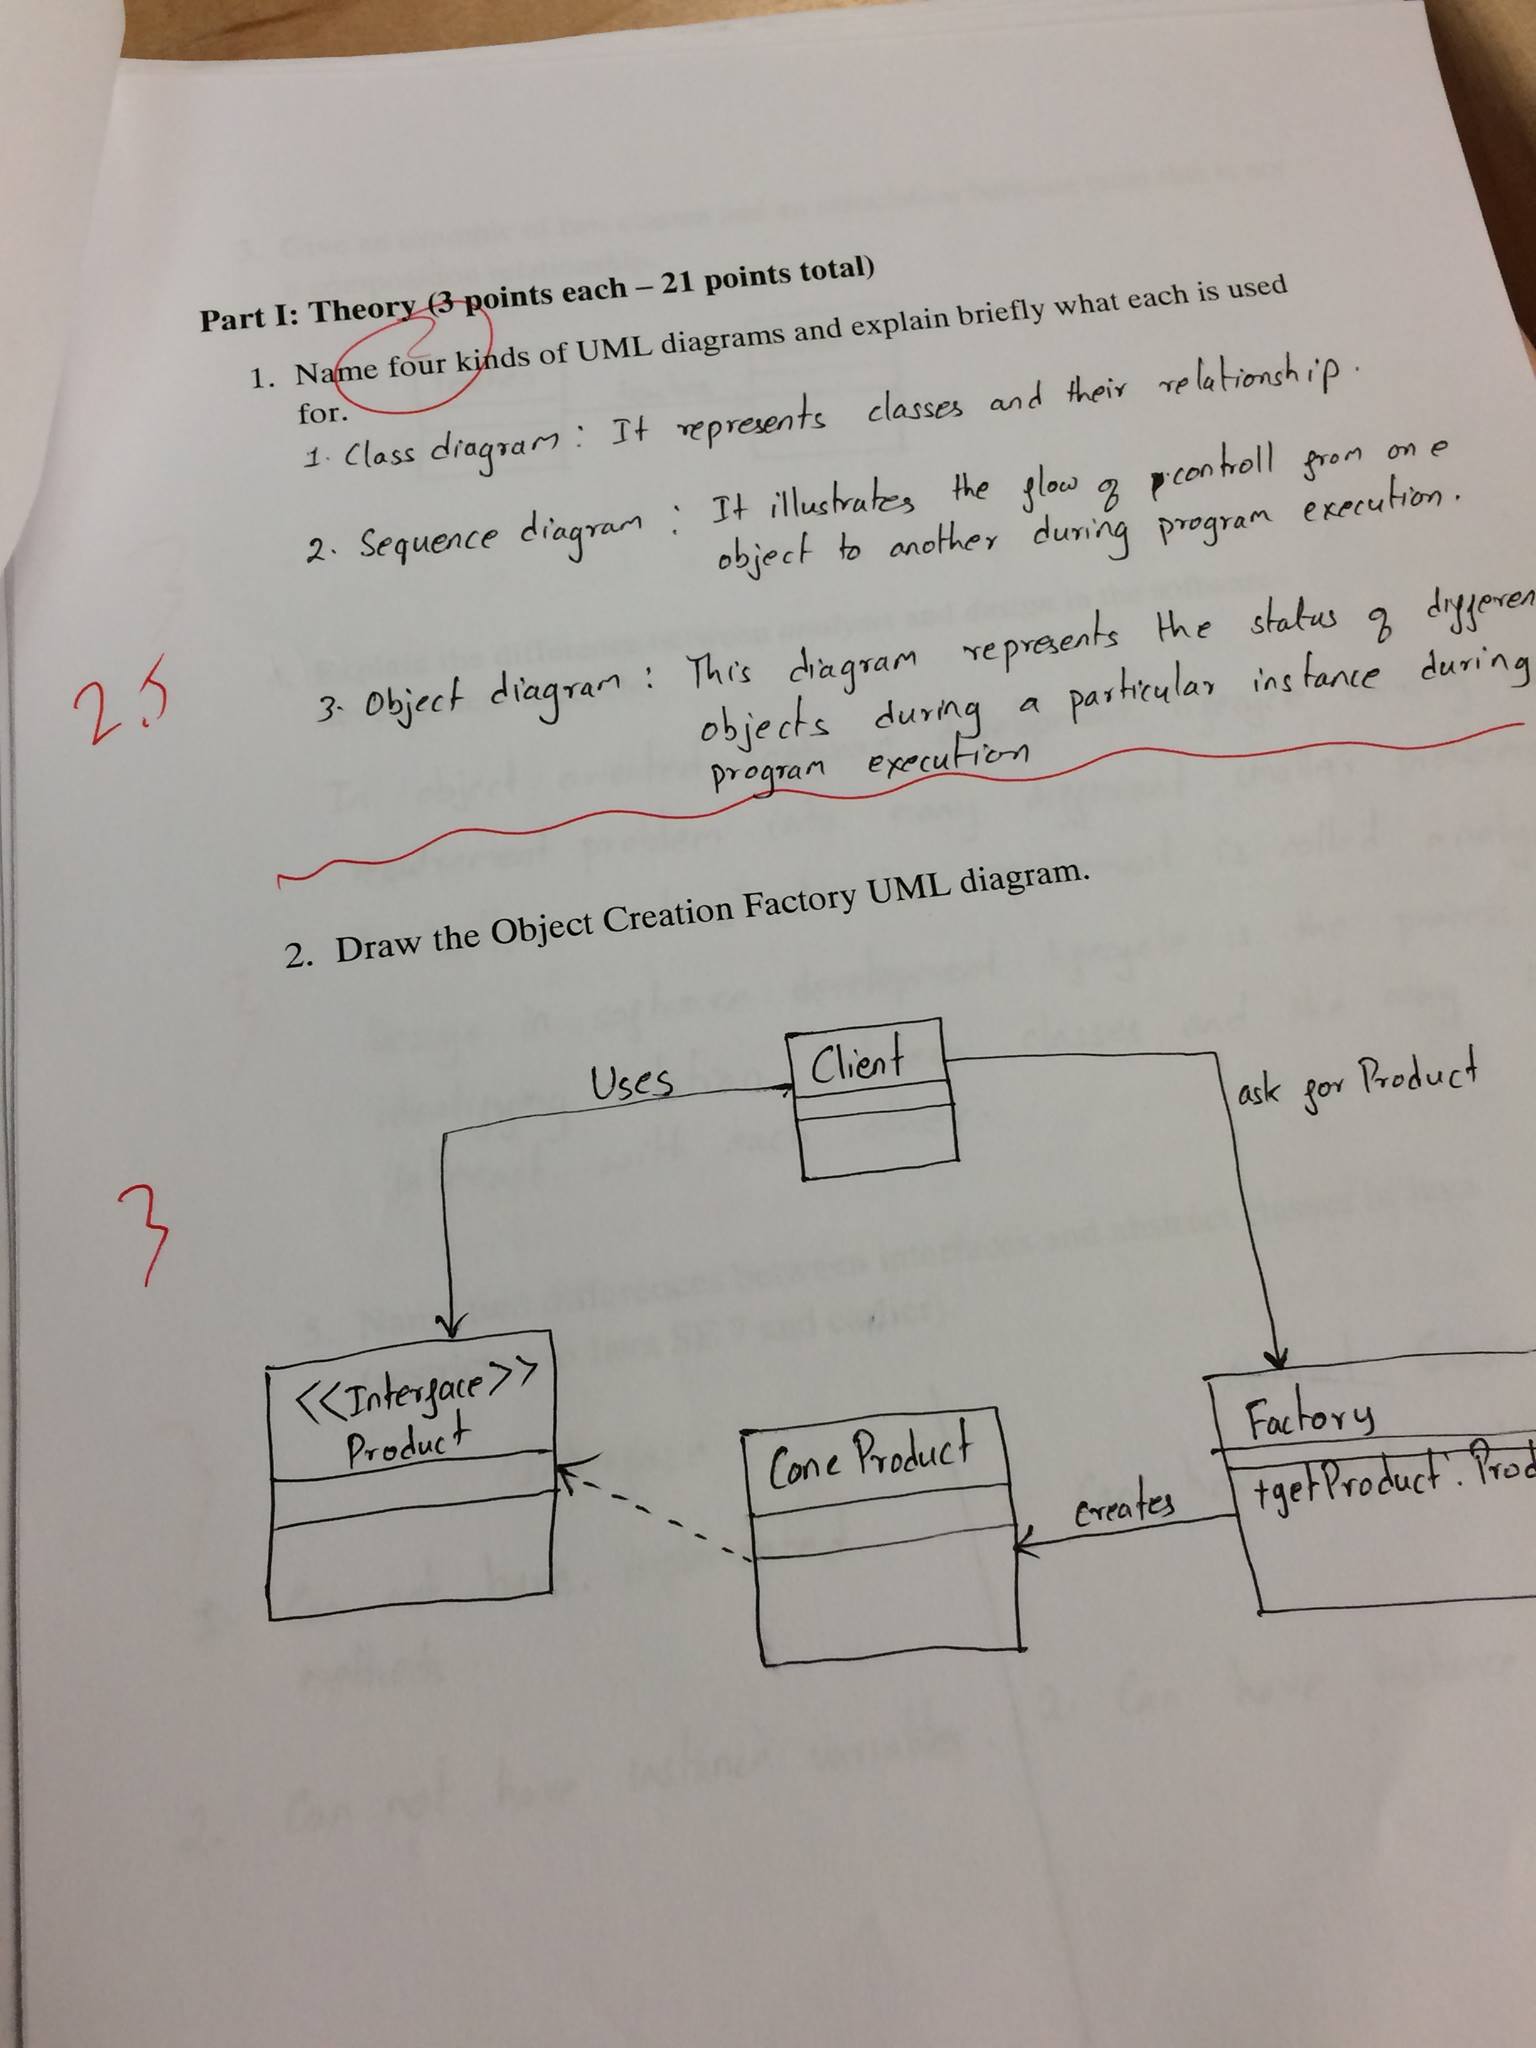 Part I: Theory (3 points each – 21 points total)
1. Name four kinds of UML diagrams and explain briefly what each is used
for.
1. Class diagram : It represents classes and their relationship.
2. Sequence diagram : It illustrates the flow of controll from one
object to another during program execution.
2.5
3. Object diagram : This diagram represents the status of differen
objects during a particular instance during
program execution
2. Draw the Object Creation Factory UML diagram.
Client
Uses
ask for Product
3
<<Interface>>
Product
Cone Product
Factory
+getProduct : Prod
creates